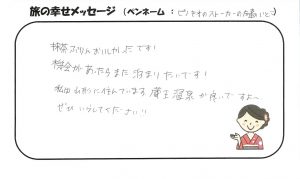 旅の幸せメッセージ (ペンネーム:ピノキオのストーカーの友達いと)
抹茶プリンおいしかったです!
機会があったらまた泊まりたいです!
私は山形に住んでいます 蔵王温泉が良いですよ〜
ぜひいらしてください!!